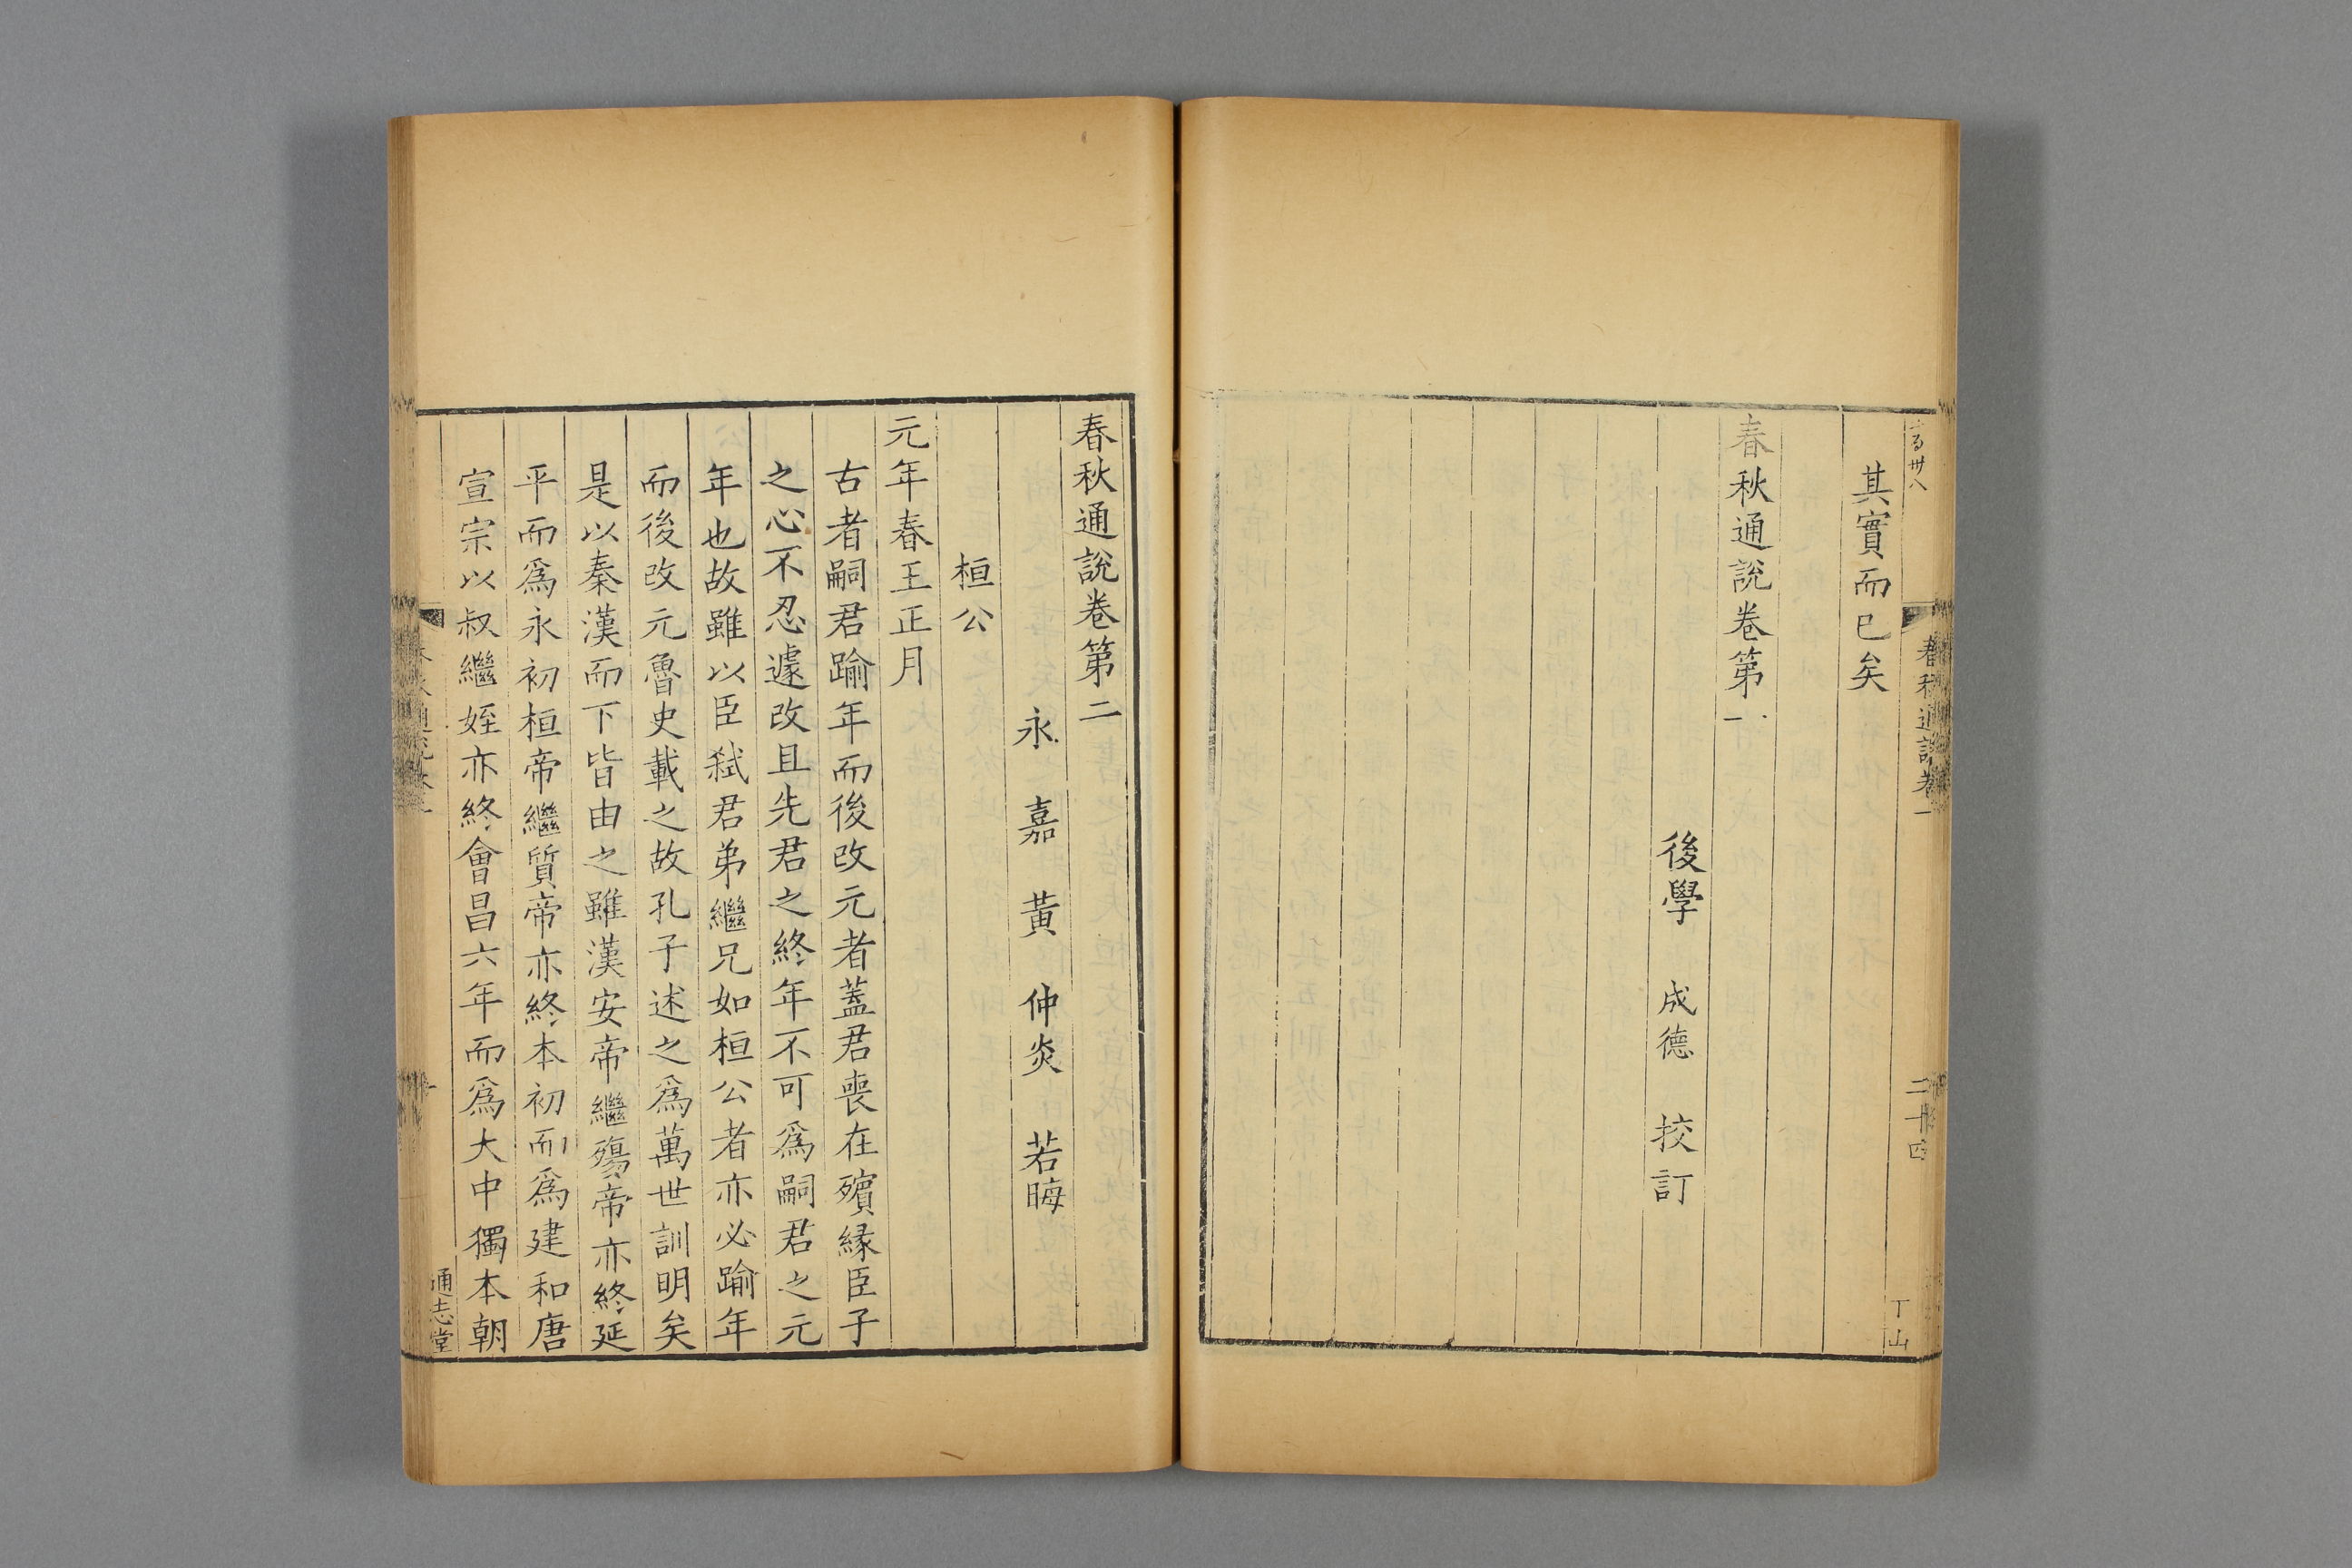 其實而已矣
春秋通說卷第一
後學 成德 挍訂
春秋通說卷一
二十四
丁山
春秋通說卷第二
永嘉黃仲炎若晦
桓公
元年春王正月
古者嗣君踰年而後改元者蓋君喪在殯緣臣子
之心不忍遽改且先君之終年不可爲嗣君之元
年也故雖以臣弑君弟繼兄如桓公者亦必踰年
而後改元魯史載之故孔子述之爲萬世訓明矣
是以秦漢而下皆由之雖漢安帝繼殤帝亦終延
平而爲永初桓帝繼質帝亦終本初而爲建和唐
宣宗以叔繼姪亦終會昌六年而爲大中獨本朝
通志堂